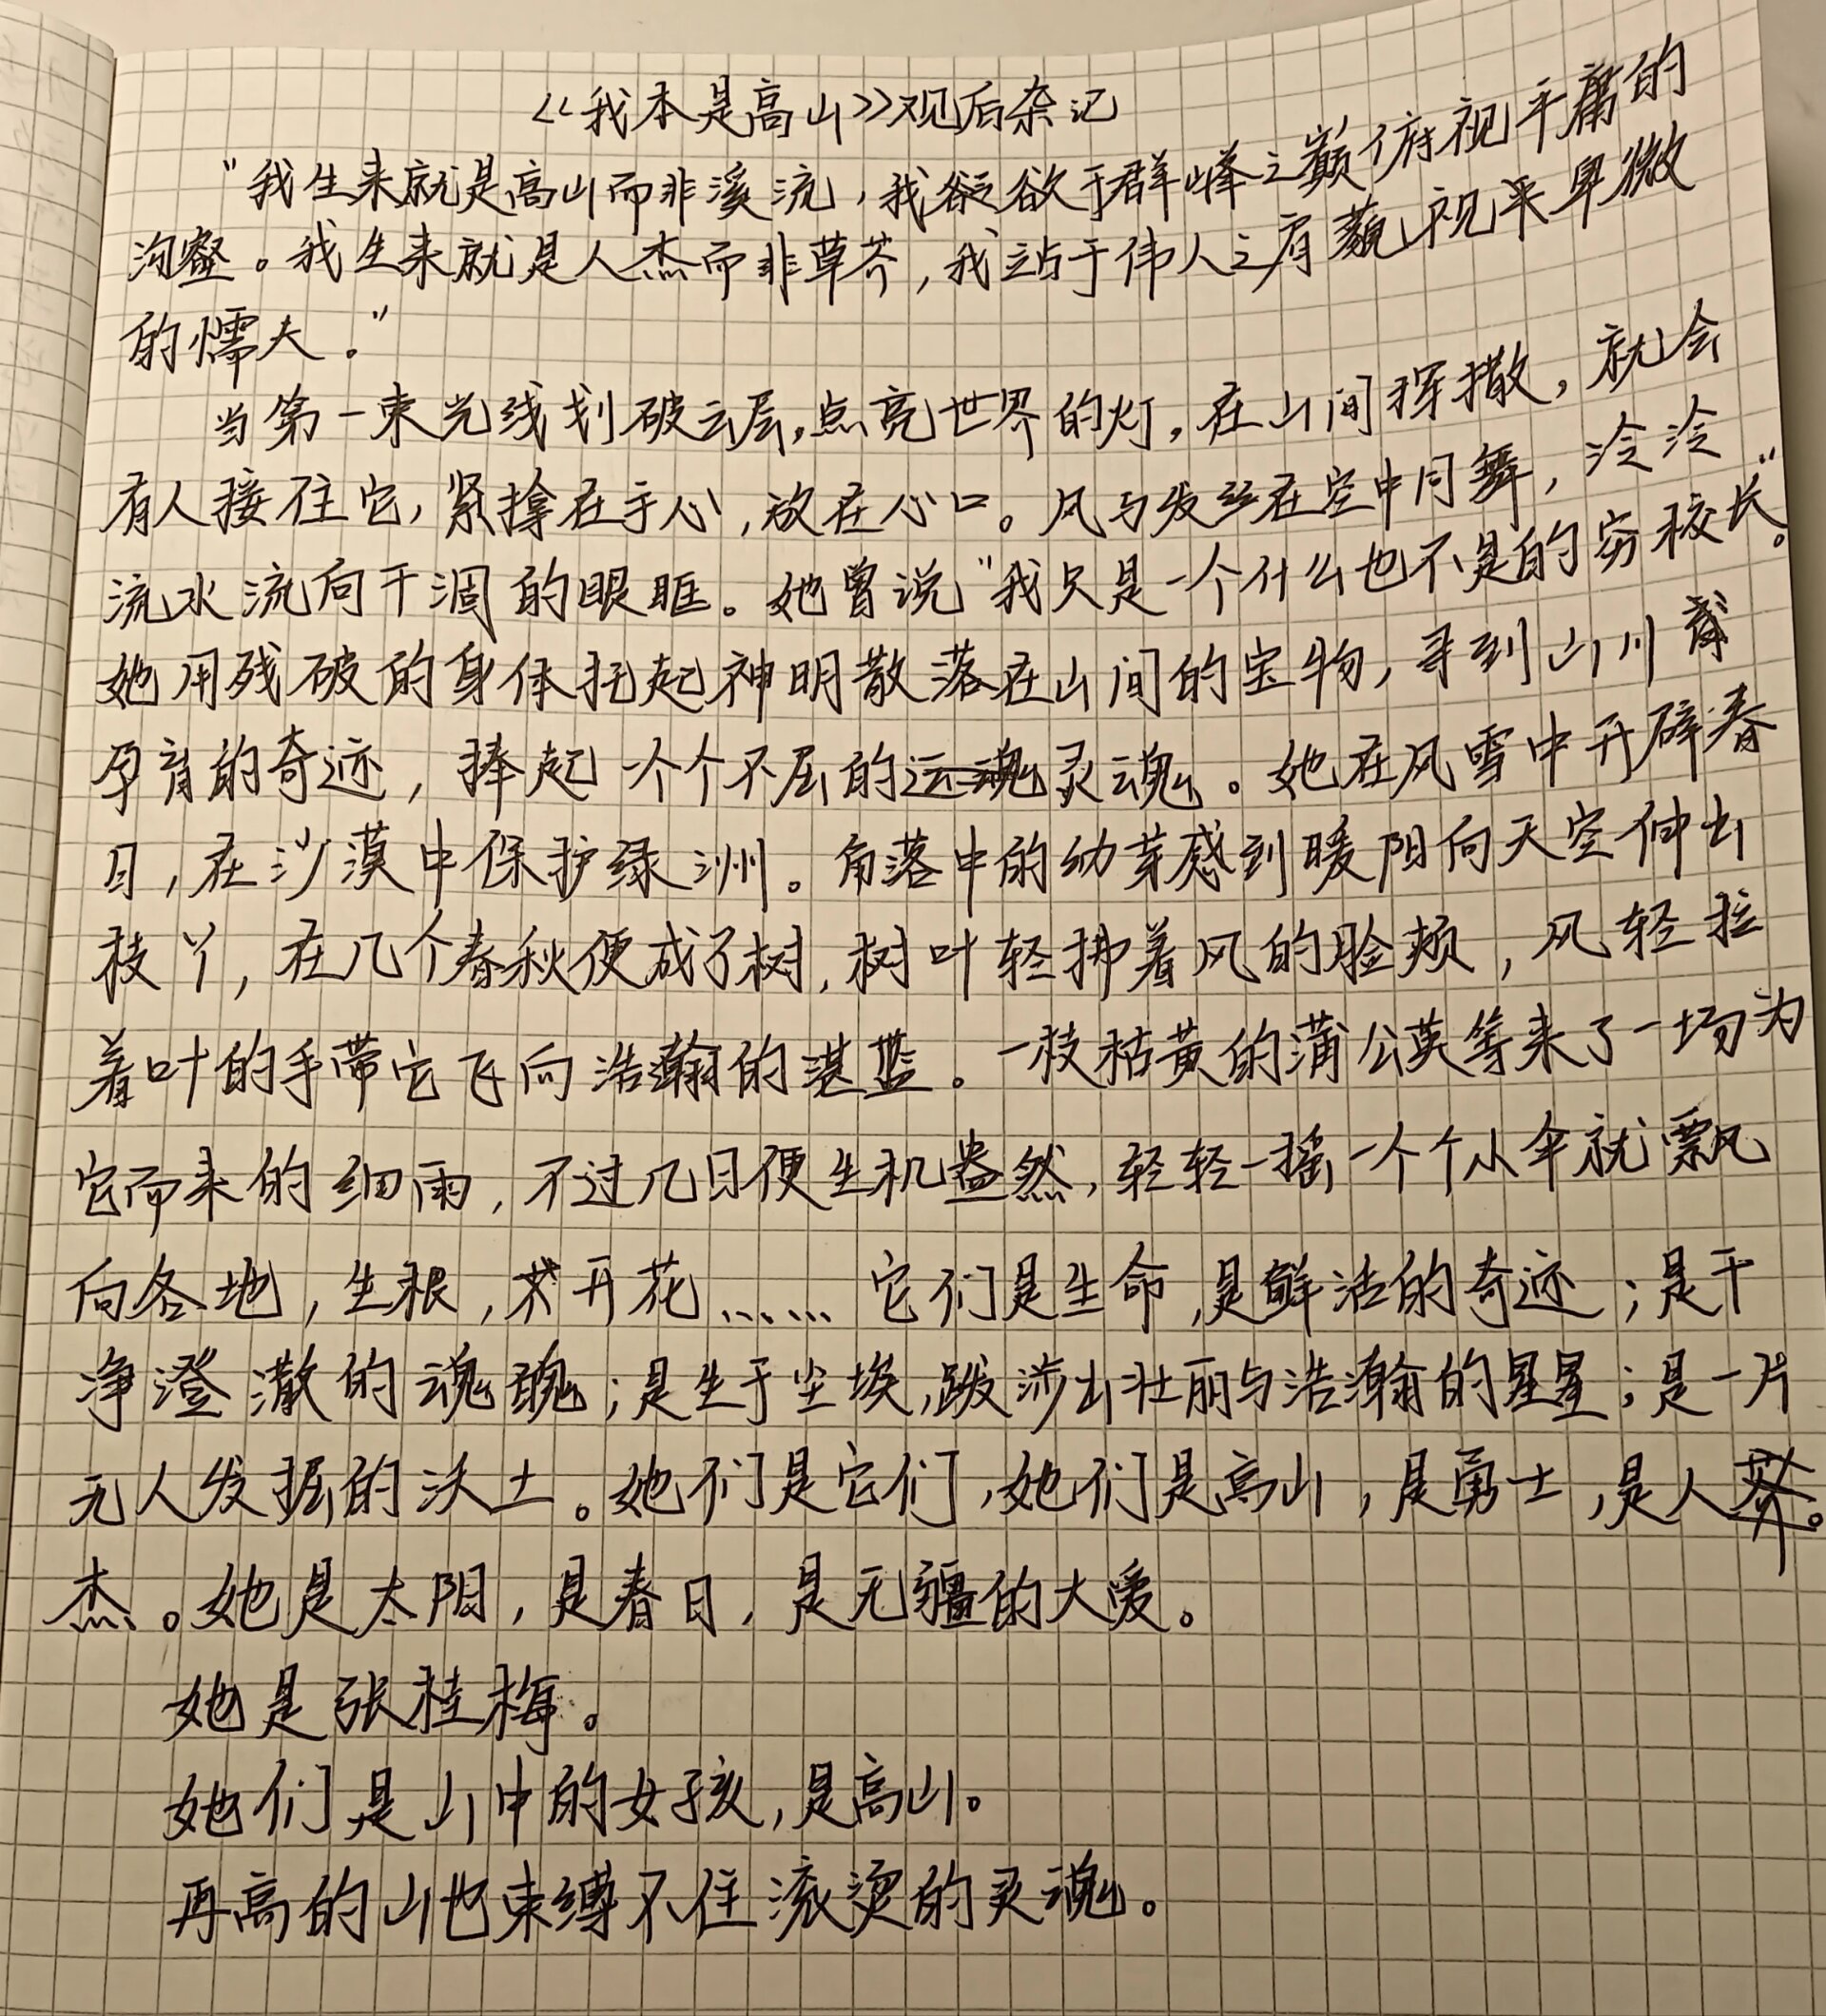 《我本是高山》观后杂记
"我生来就是高山而非溪流，我欲于群峰之巅俯视平庸的
沟壑。我生来就是人杰而非草芥，我站于伟人之肩藐视卑微
的懦夫。"
当第一束光线划破云层，点亮世界的灯，在山间挥撒，就会
有人接住它，紧撑在手心，放在心口。风与发丝在空中同舞，泠泠
流水流向干涸的眼眶。她曾说"我只是一个什么也不是的穷校长"。
她用残破的身体托起神明散落在山间的宝物，寻到山川
孕育的奇迹，捧起一个个不屈的灵魂。她在风雪中开辟春
日，在沙漠中保护绿洲。角落中的幼芽感到暖阳向天空伸出
枝丫，在几个春秋便成了树，树叶轻拂着风的脸颊，风轻拉
着叶的手带它飞向浩瀚的湛蓝。一枝枯黄的蒲公英等来了一场为
它而来的细雨，不过几日便生机盎然，轻轻一摇一个个小伞就飘
向各地，生根，开花……它们是生命，是鲜活的奇迹；是干
净澄澈的魂魄；是生于尘埃，跋涉出壮丽与浩瀚的星星；是一片
无人发掘的沃土。她们是它们，她们是高山，是勇士，是人
杰。她是太阳，是春日，是无疆的大爱。
她是张桂梅。
她们是山中的女孩，是高山。
再高的山也束缚不住滚烫的灵魂。